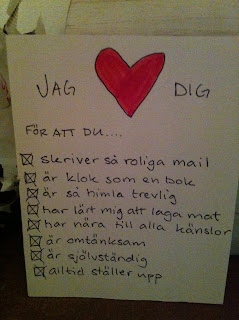 JAG DIG
FÖR ATT DU....
skriver så roliga mail
är klok som en bok
är så himla trevlig
har lärt mig att laga mat
har nära till alla känslor
är omtänksam
är självständig
alltid ställer upp